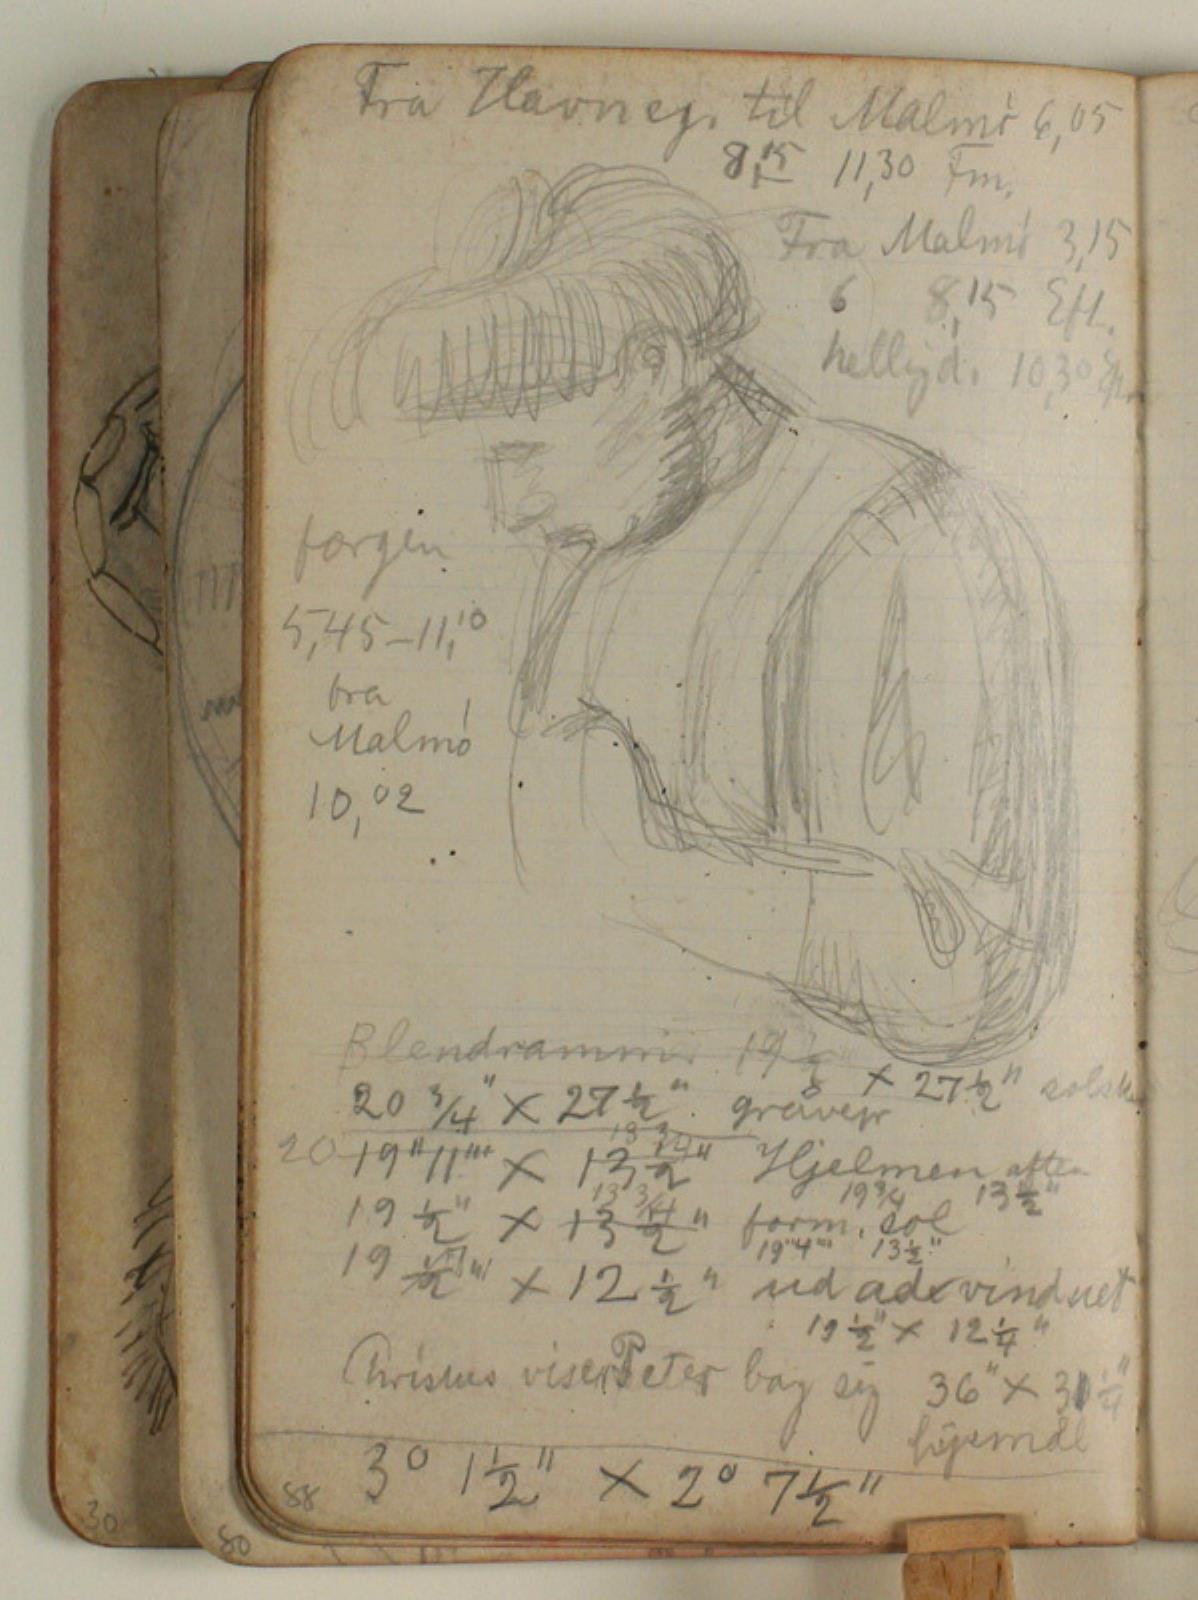 Fra Havneg. til Malmö 6,05
8,15 11,30 Fm.
Fra Malmö 3,15
6 8,15 Eft.
helligd. 10,30 Eft.
færgen
5,45–11,10
fra
Malmö
10,02
Blendrammer 19 1/2
× 27 1/2"
20 3/4" × 27 1/2" gråvejr
13 3/4
20 19" 11"' × 13 1/2" Hjelmen aften
13 3/4 19 3/4 13 1/2"
19 1/2" × 13 1/2" form. sol
19" 4"' 13 1/2"
19 × 12 1/2" ud ad vinduet
19 1/2" × 12 1/4"
Christus viser Peter bag sig 36" × 31 1/4"
lysmål
3° 1 1/2" × 2° 7 1/2"
88
80
30